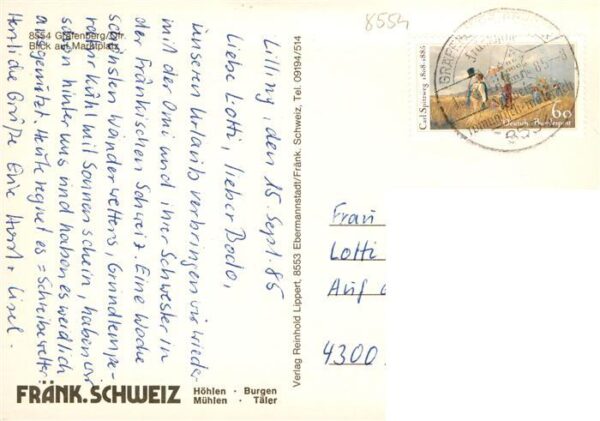 8554 Gräfenberg/Ofr.
Blick auf Marktplatz
8554
Lilling, den 15. Sept. 85
Liebe Lotti, lieber Bodo,
unseren Urlaub verbringen wir wieder
mit der Omi und ihrer Schwester in
der Fränkischen Schweiz. Eine Woche
schönsten Wanderwetters, Grundtempe-
ratur kühl mit Sonnenschein, haben wir
schon hinter uns und haben es weidlich
ausgenützt. Heute regnet es = Schreibewetter.
Herzliche Grüße Eure Horst + Lisel.
Verlag Reinhold Lippert, 8553 Ebermannstadt/Fränk. Schweiz, Tel. 09194/514
Carl Spitzweg 1808-1885
60
Deutsche Bundespost
Frau
Lotti
Auf
4300
FRÄNK. SCHWEIZ
Höhlen · Burgen
Mühlen · Täler